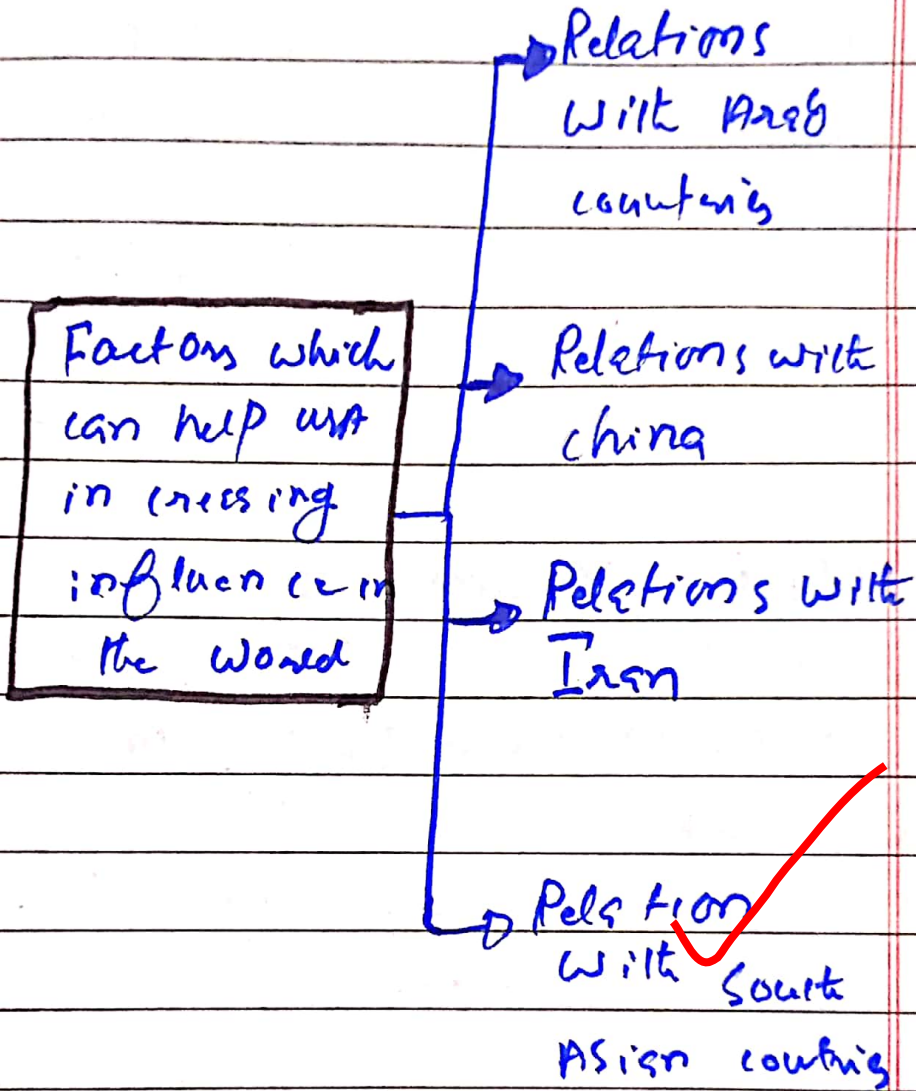 Factors which
can help USA
in creasing
influence in
the world
Relations
with Arab
countries
Relations with
china
Relations with
Iran
Relation
with South
Asian countries